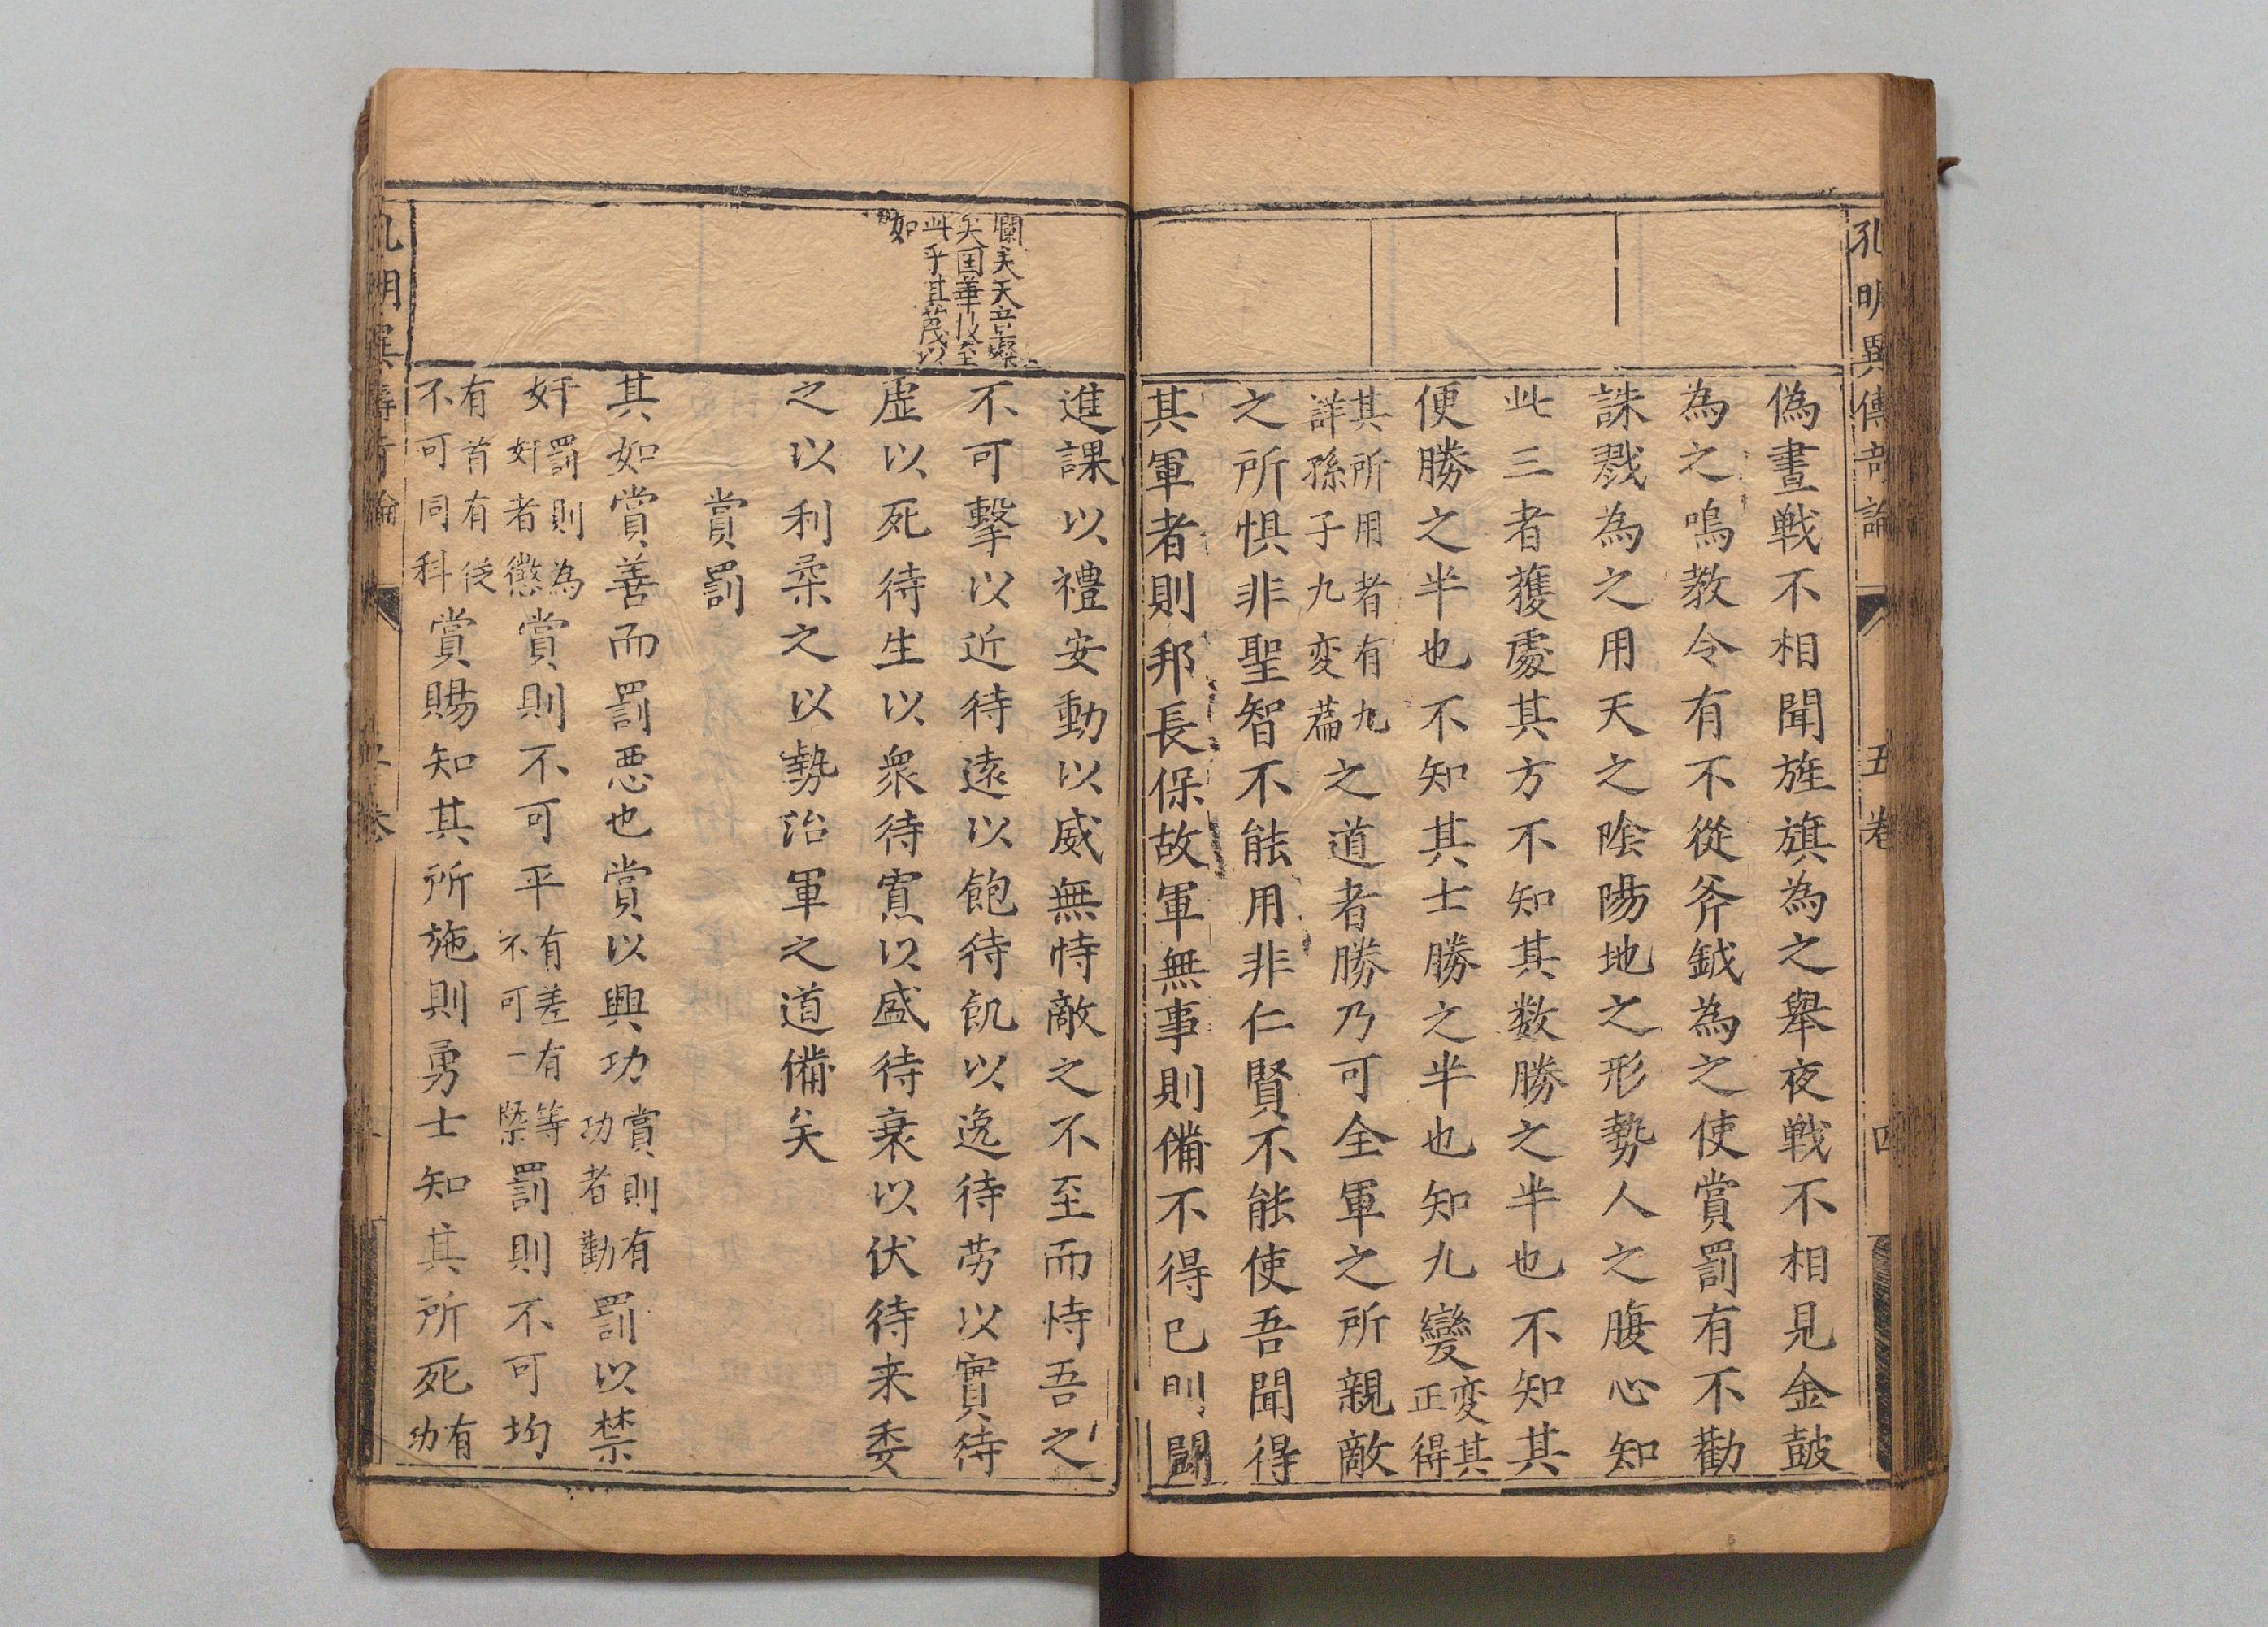 孔明異傳奇論 五卷 四
偽晝戦不相聞旌旗為之舉夜戦不相見金鼓
為之鳴教令有不從斧鉞為之使賞罰有不勸
誅戮為之用天之陰陽地之形勢人之腹心知
此三者獲處其方不知其数勝之半也不知其
便勝之半也不知其士勝之半也知九變変其正得
其所用者有九詳孫子九変篇之道者勝乃可全軍之所親敵
之所惧非聖智不能用非仁賢不能使吾聞得
其軍者則邦長保故軍無事則備不得已則闘
進課以禮安動以威無恃敵之不至而恃吾之
不可擊以近待遠以飽待飢以逸待劳以實待
虚以死待生以衆待寡以盛待衰以伏待来委
之以利柔之以勢治軍之道備矣
賞罰
其如賞善而罰悪也賞以興功賞則有功者勸罰以禁
奸罰則為奸者懲賞則不可平有差有等不可一槩罰則不可均
有首有從不可同科賞賜知其所施則勇士知其所死有功
五卷